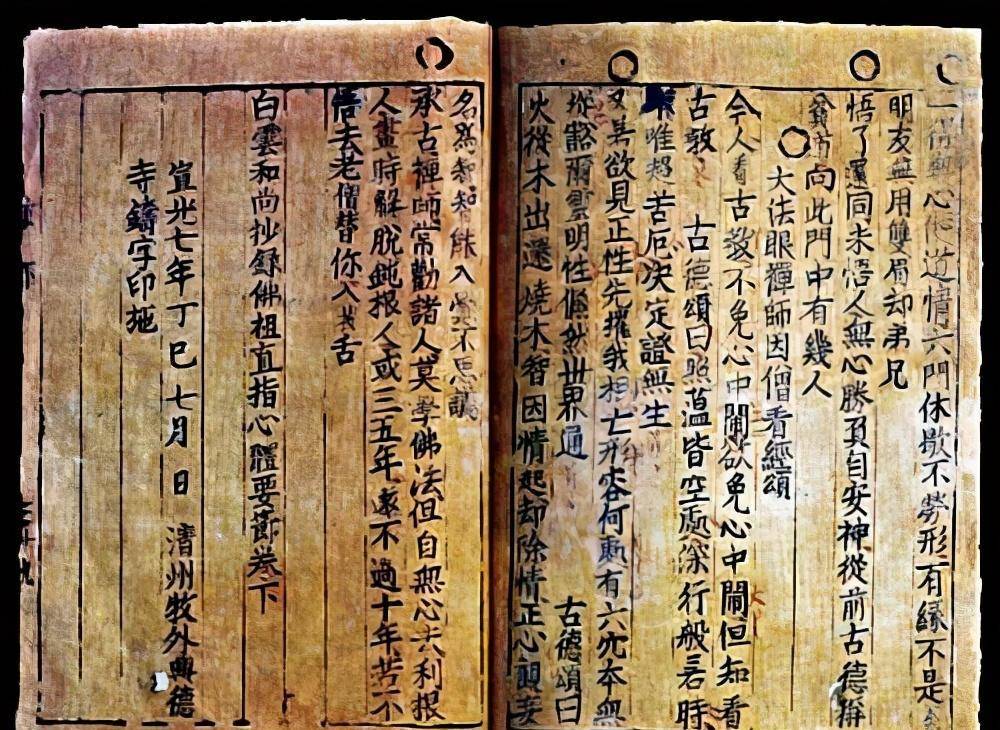 一得無心便道情六門休歇不勞形有緣不是
朋友無用雙眉却弟兄
悟了還同未悟人無心勝負自安神從前古德稱
貧道向此門中有幾人
大法眼禪師因僧看經頌
今人看古教不免心中鬧欲免心中鬧但知看
古教 古德頌曰照蘊皆空處深行般若時
唯超苦厄決定證無生
又若欲見正性先摧我相亡形容何處有六穴本無
蹤豁爾靈明性翛然世界通 古德頌曰
火從木出還燒木智因情起却除情正心觀妄
名爲智智能入 不思議
承古禪師常勸諸人莫學佛法但自無心去利根
人晝時解脫鈍根人或三五年遠不過十年若不
悟去老僧替你入 舌
白雲和尚抄錄佛祖直指心體要節卷下
宣光七年丁巳七月 日 淸州牧外興德
寺鑄字印施